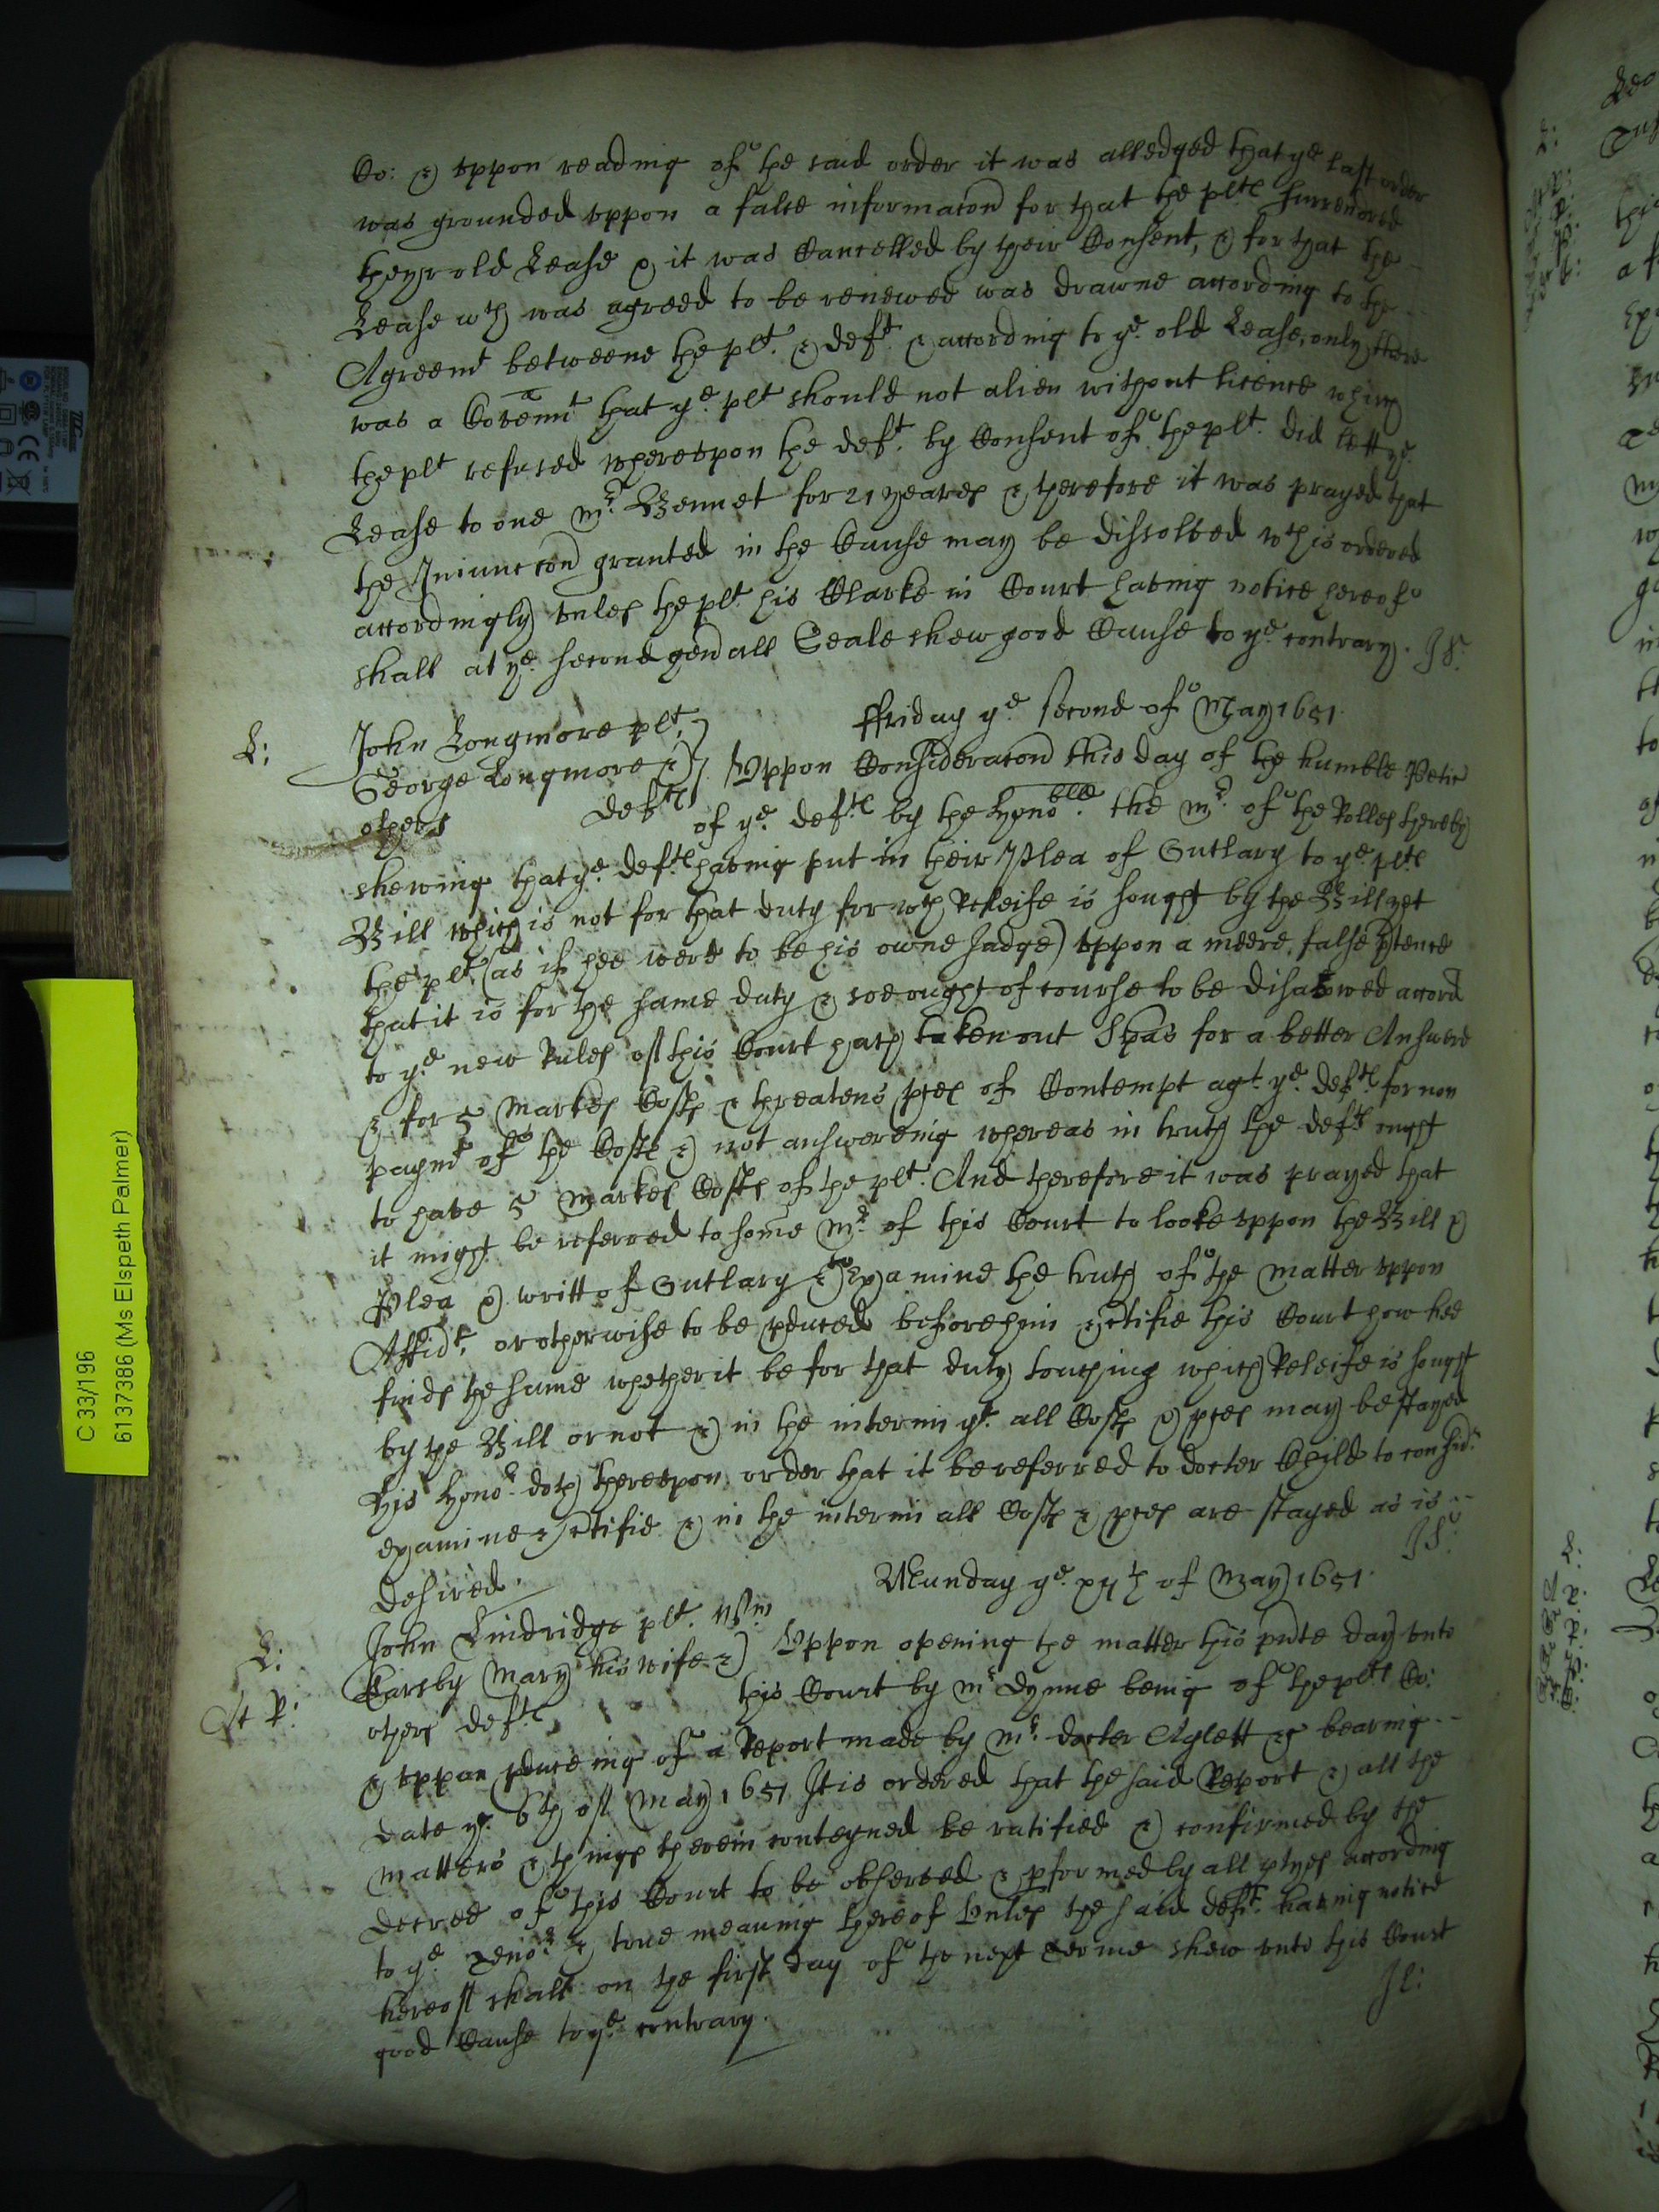 Co: & uppon reading of the said order it was alledged that ye last order
was grounded uppon a false informacon for that the plts surrendred
theyr old Lease & it was Cancelled by their Consent, & for that the
Lease wch was agreed to be renewed was drawne according to the
Agreemt betweene the plt. & deft. & according to ye. old Lease, only there
was a Covennt that ye. plt should not alien without licence which
the plt refused whereupon the deft. by Consent of the plt. did lett ye.
Lease to one Mr. Bennet for 21 yeares & therefore it was prayed that
the Iniunccon granted in the Cause may be dissolved wch is ordered
accordingly unles the plt. his Clarke in Court having notice hereof
shall at ye. second genall Seale shew good Cause to ye. contrary.
ffriday ye. second of May 1651.
L:
John Longmore plt.
George Longmore &
others defts
Uppon Consideracon this day of the humble Peticon
of ye. defts by the Honoble. the Mr. of the Rolles thereby
shewing that ye. defts having put in their Plea of Outlary to ye. plts
Bill which is not for that duty for wch Releife is sought by the Bill yet
the plt. (as if hee were to be his owne Judge) uppon a meere false ptence
that it is for the same duty & soe ought of course to be disalowed accord
to ye new Rules of this Court hath taken out Spas for a better Answere
& for 5 Markes Costs & threatens pces of Contempt agt. ye. defts for non
paymt of the Costs & not answereing whereas in truth the defts ought
to have 5 Markes Costs of the plt. And therefore it was prayed that
it might be referred to some Mr. of this Court to looke uppon the Bill &
Plea & writt of Outlary & to Examine the truth of the matter uppon
Affidt. or otherwise to be pduced before him & ctifie this Court how hee
finds the same whether it be for that duty touching which Releife is sought
by the Bill or not & in the interim yt. all Costs & pces may be stayed
His Honor. doth thereupon order that it be referred to docter Child to consid.
examine & ctifie & in the interim all Costs & pces are stayed as is
desired.
Munday ye. xijth of May 1651.
L:
John Lindridge plt. Wm
Earsby Mary his wife &
others defts
Uppon opening the matter this pnte day unto
this Court by Mr Dynne being of the plts Co:
& uppon pduceing of a Report made by Mr. docter Aylett & bearing
date ye. 6th of May 1651 It is ordered that the said Report & all the
matters & things therein conteyned be ratified & confirmed by the
decree of this Court to be observed & pformed by all ptyes according
to ye. Tenor. & true meaning thereof Unles the said deft. having notice
hereof shall on the first day of the next Terme shew unto this Court
good Cause to ye. contrary.
C 33/196
61 37386 (Ms Elspeth Palmer)